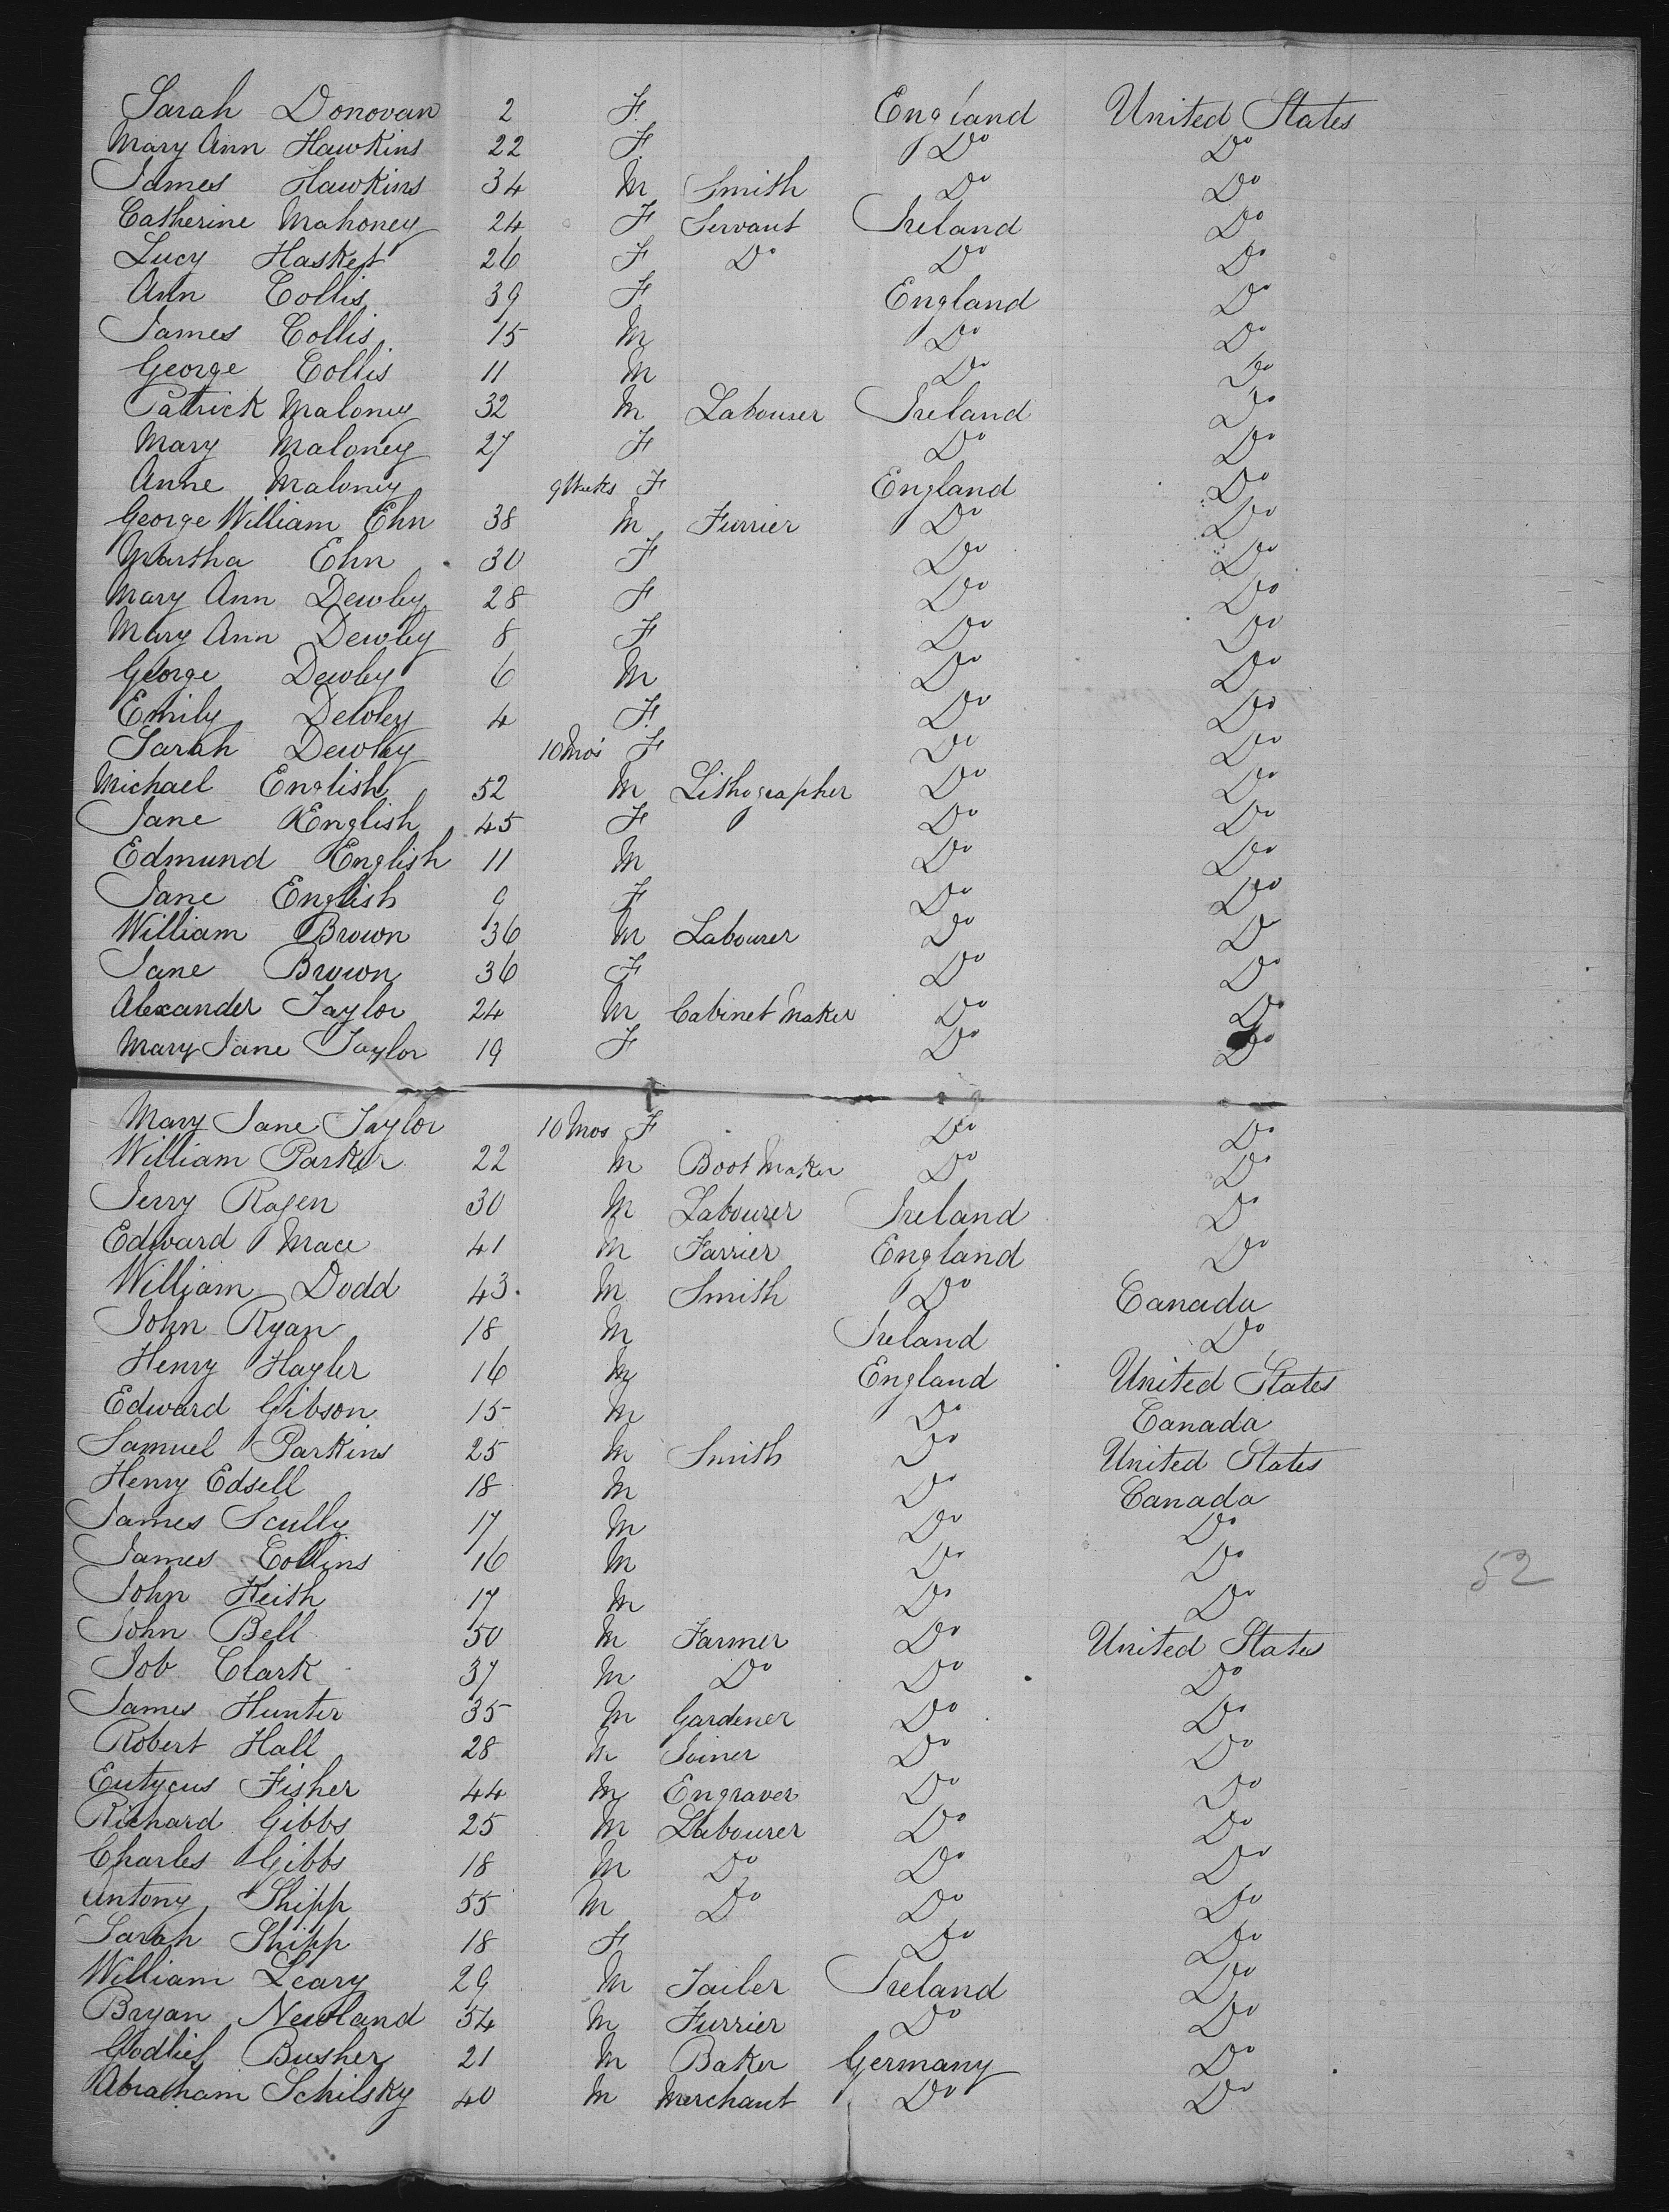 Sarah Donovan 2 F. England United States
Mary Ann Hawkins 22 F. Do Do
James Hawkins 34 M Smith Do Do
Catherine Mahoney 24 F Servant Ireland Do
Lucy Haskett 26 F Do Do Do
Ann Collis 39 F England Do
James Collis 15 M Do Do
George Collis 11 M Do Do
Patrick Maloney 32 M Labourer Ireland Do
Mary Maloney 27 F Do Do
Anne Maloney 9 Weeks F England Do
George William Ehn 38 M Furrier Do Do
Martha Ehn 30 F Do Do
Mary Ann Dewley 28 F Do Do
Mary Ann Dewley 8 F Do Do
George Dewley 6 M Do Do
Emily Dewley 4 F. Do Do
Sarah Dewley 10 Mos F Do Do
Michael English 52 M Lithographer Do Do
Jane English 45 F Do Do
Edmund English 11 M Do Do
Jane English 9 F Do Do
William Brown 36 M Labourer Do Do
Jane Brown 36 F Do Do
Alexander Taylor 24 M Cabinet Maker Do Do
Mary Jane Taylor 19 F Do Do
Mary Jane Taylor 10 Mos F Do Do
William Parker 22 M Boot Maker Do Do
Jerry Ragen 30 M Labourer Ireland Do
Edward Mace 41 M Farrier England Do
William Dodd 43 M Smith Do Canada
John Ryan 18 M Ireland Do
Henry Hayler 16 M England United States
Edward Gibson 15 M Do Canada
Samuel Parkins 25 M Smith Do United States
Henry Edsell 18 M Do Canada
James Scully 17 M Do Do
James Collins 16 M Do Do
John Keith 17 M Do Do
52
John Bell 50 M Farmer Do United States
Job Clark 37 M Do Do Do
James Hunter 35 M Gardener Do Do
Robert Hall 28 M Joiner Do Do
Eutycus Fisher 44 M Engraver Do Do
Richard Gibbs 25 M Labourer Do Do
Charles Gibbs 18 M Do Do Do
Antony Shipp 55 M Do Do Do
Sarah Shipp 18 F Do Do
William Leary 29 M Tailer Ireland Do
Bryan Newland 54 M Furrier Do Do
Godlief Busher 21 M Baker Germany Do
Abraham Schilsky 40 M Merchant Do Do